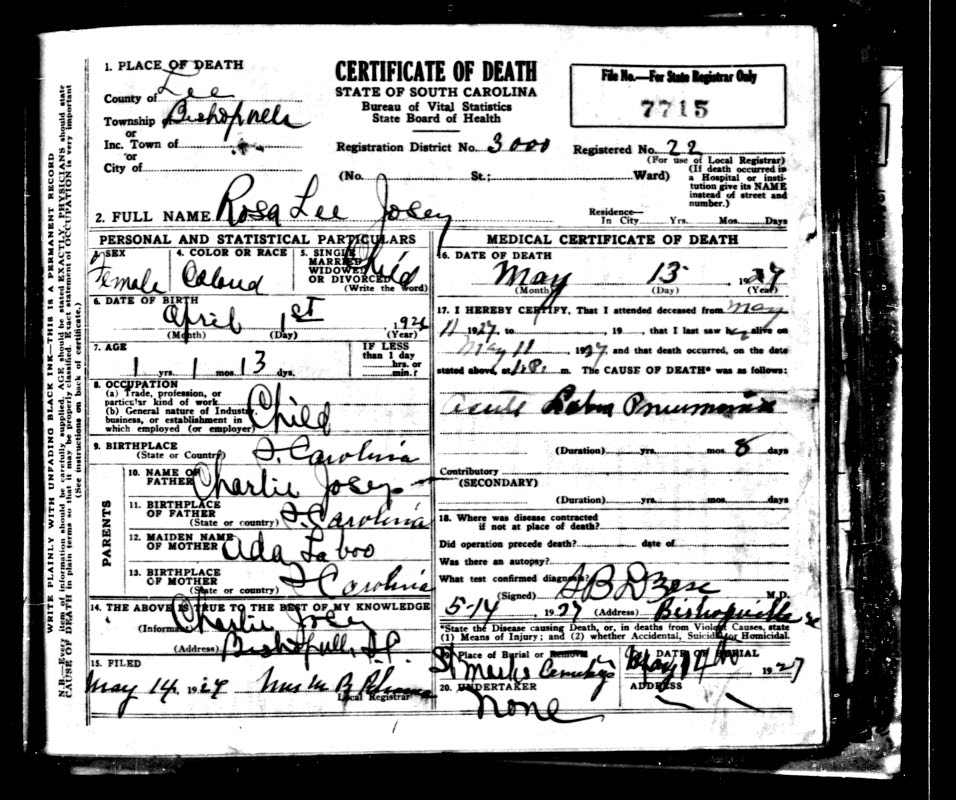 1. PLACE OF DEATH
County of Lee
Township of Bishopville
or
Inc. Town of
or
City of
CERTIFICATE OF DEATH
STATE OF SOUTH CAROLINA
Bureau of Vital Statistics
State Board of Health
Registration District No. 3000
(No. St.; Ward)
File No.—For State Registrar Only
7715
Registered No. 22
(For use of Local Registrar)
(If death occurred in
a Hospital or insti-
tution give its NAME
instead of street and
number.)
2. FULL NAME Rosa Lee Josey
Residence—
In City Yrs. Mos. Days
PERSONAL AND STATISTICAL PARTICULARS
3. SEX
Female
4. COLOR OR RACE
Colored
5. SINGLE
MARRIED
WIDOWED
OR DIVORCED
(Write the word)
Child
6. DATE OF BIRTH
April 1st 192
(Month) (Day) (Year)
7. AGE
1 yrs. 1 mos. 13 dys.
IF LESS
than 1 day
hrs. or
min.?
8. OCCUPATION
(a) Trade, profession, or
particular kind of work
(b) General nature of Industry,
business, or establishment in
which employed (or employer)
Child
9. BIRTHPLACE
(State or Country) S. Carolina
PARENTS
10. NAME OF
FATHER Charlie Josey
11. BIRTHPLACE
OF FATHER
(State or country) S. Carolina
12. MAIDEN NAME
OF MOTHER Ada Laboo
13. BIRTHPLACE
OF MOTHER
(State or country) S Carolina
14. THE ABOVE IS TRUE TO THE BEST OF MY KNOWLEDGE
(Informant) Charlie Josey
(Address) Bishopville, SC
15. FILED
May 14, 1927 Mrs M B
Local Registrar
MEDICAL CERTIFICATE OF DEATH
16. DATE OF DEATH
May 13 1927
(Month) (Day) (Year)
17. I HEREBY CERTIFY, That I attended deceased from May
11 1927 to , 19 , that I last saw alive on
May 11 , 1927 and that death occurred, on the date
stated above, at m. The CAUSE OF DEATH* was as follows:
Acute Lobar Pneumonia
(Duration) yrs. mos. 8 days
Contributory
(SECONDARY)
(Duration) yrs. mos. days
18. Where was disease contracted
if not at place of death?
Did operation precede death? date of
Was there an autopsy?
What test confirmed diagnosis?
(Signed) M.D.
5-14 1927 (Address) Bishopville SC
*State the Disease causing Death, or, in deaths from Violent Causes, state
(1) Means of Injury; and (2) whether Accidental, Suicidal or Homicidal.
19. Place of Burial or Removal
St Marks Cemetery
DATE OF BURIAL
May 14th 1927
20. UNDERTAKER
None
ADDRESS
WRITE PLAINLY WITH UNFADING BLACK INK—THIS IS A PERMANENT RECORD
N. B.—Every item of information should be carefully supplied. AGE should be stated EXACTLY. PHYSICIANS should state
CAUSE OF DEATH in plain terms so that it may be properly classified. Exact statement of OCCUPATION is very important
(See instructions on back of certificate.)